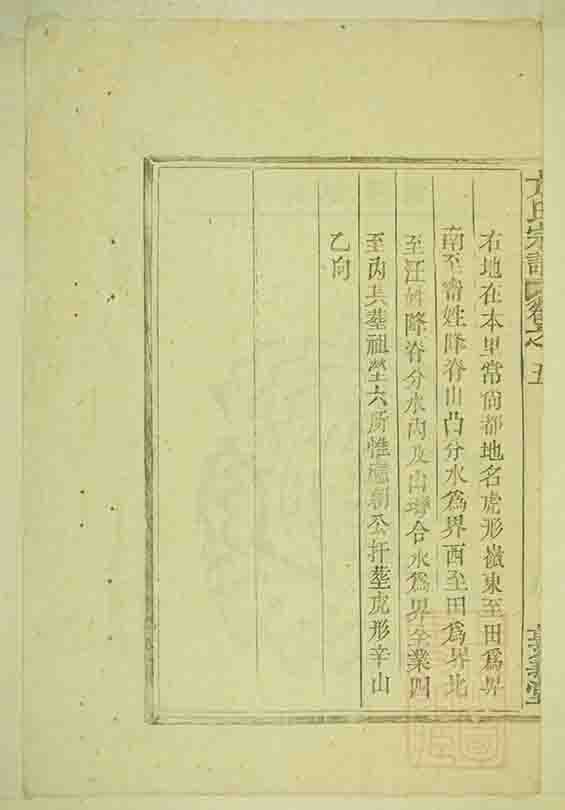 氏宗譜 卷之五
右地在本里常尙都地名虎形嶺東至田爲界
南至甯姓降脊山凸分水爲界西至田爲界北
至汪姓降脊分水內及山灣合水爲界全業四
至內共塟祖塋六所惟應朝公扞塟虎形辛山
乙向